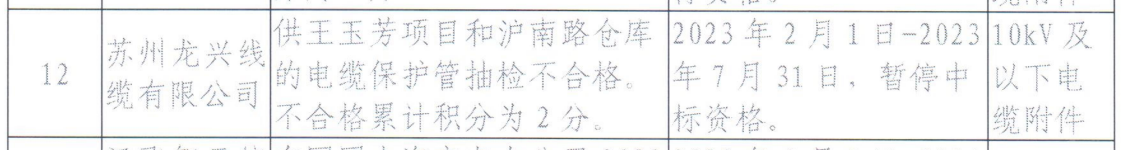 12
苏州龙兴线
缆有限公司
供王玉芳项目和沪南路仓库
的电缆保护管抽检不合格。
不合格累计积分为 2 分。
2023 年 2 月 1 日-2023
年 7 月 31 日，暂停中
标资格。
10kV 及
以下电
缆附件